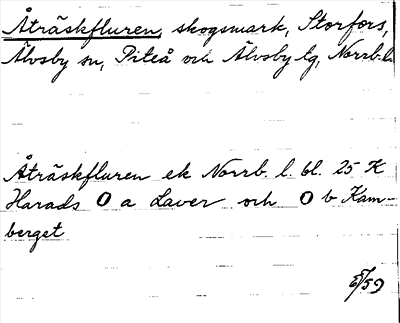 Åträskfluren, skogsmark, Storfors,
Älvsby sn, Piteå och Älvsby tg, Norrb. l.
Åträskfluren ek Norrb. l. bl. 25 K
Harads O a Laver och O b Kam-
berget
5/59